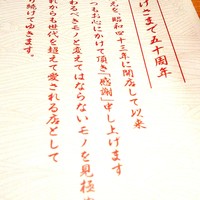 げさまで五十周年
元を、昭和四十三年に開店して以来
つもお心にかけて頂き「感謝」申し上げます
わるべきモノと変えてはならないモノを見極
れからも世代を超えて愛される店として
続けてゆきます。